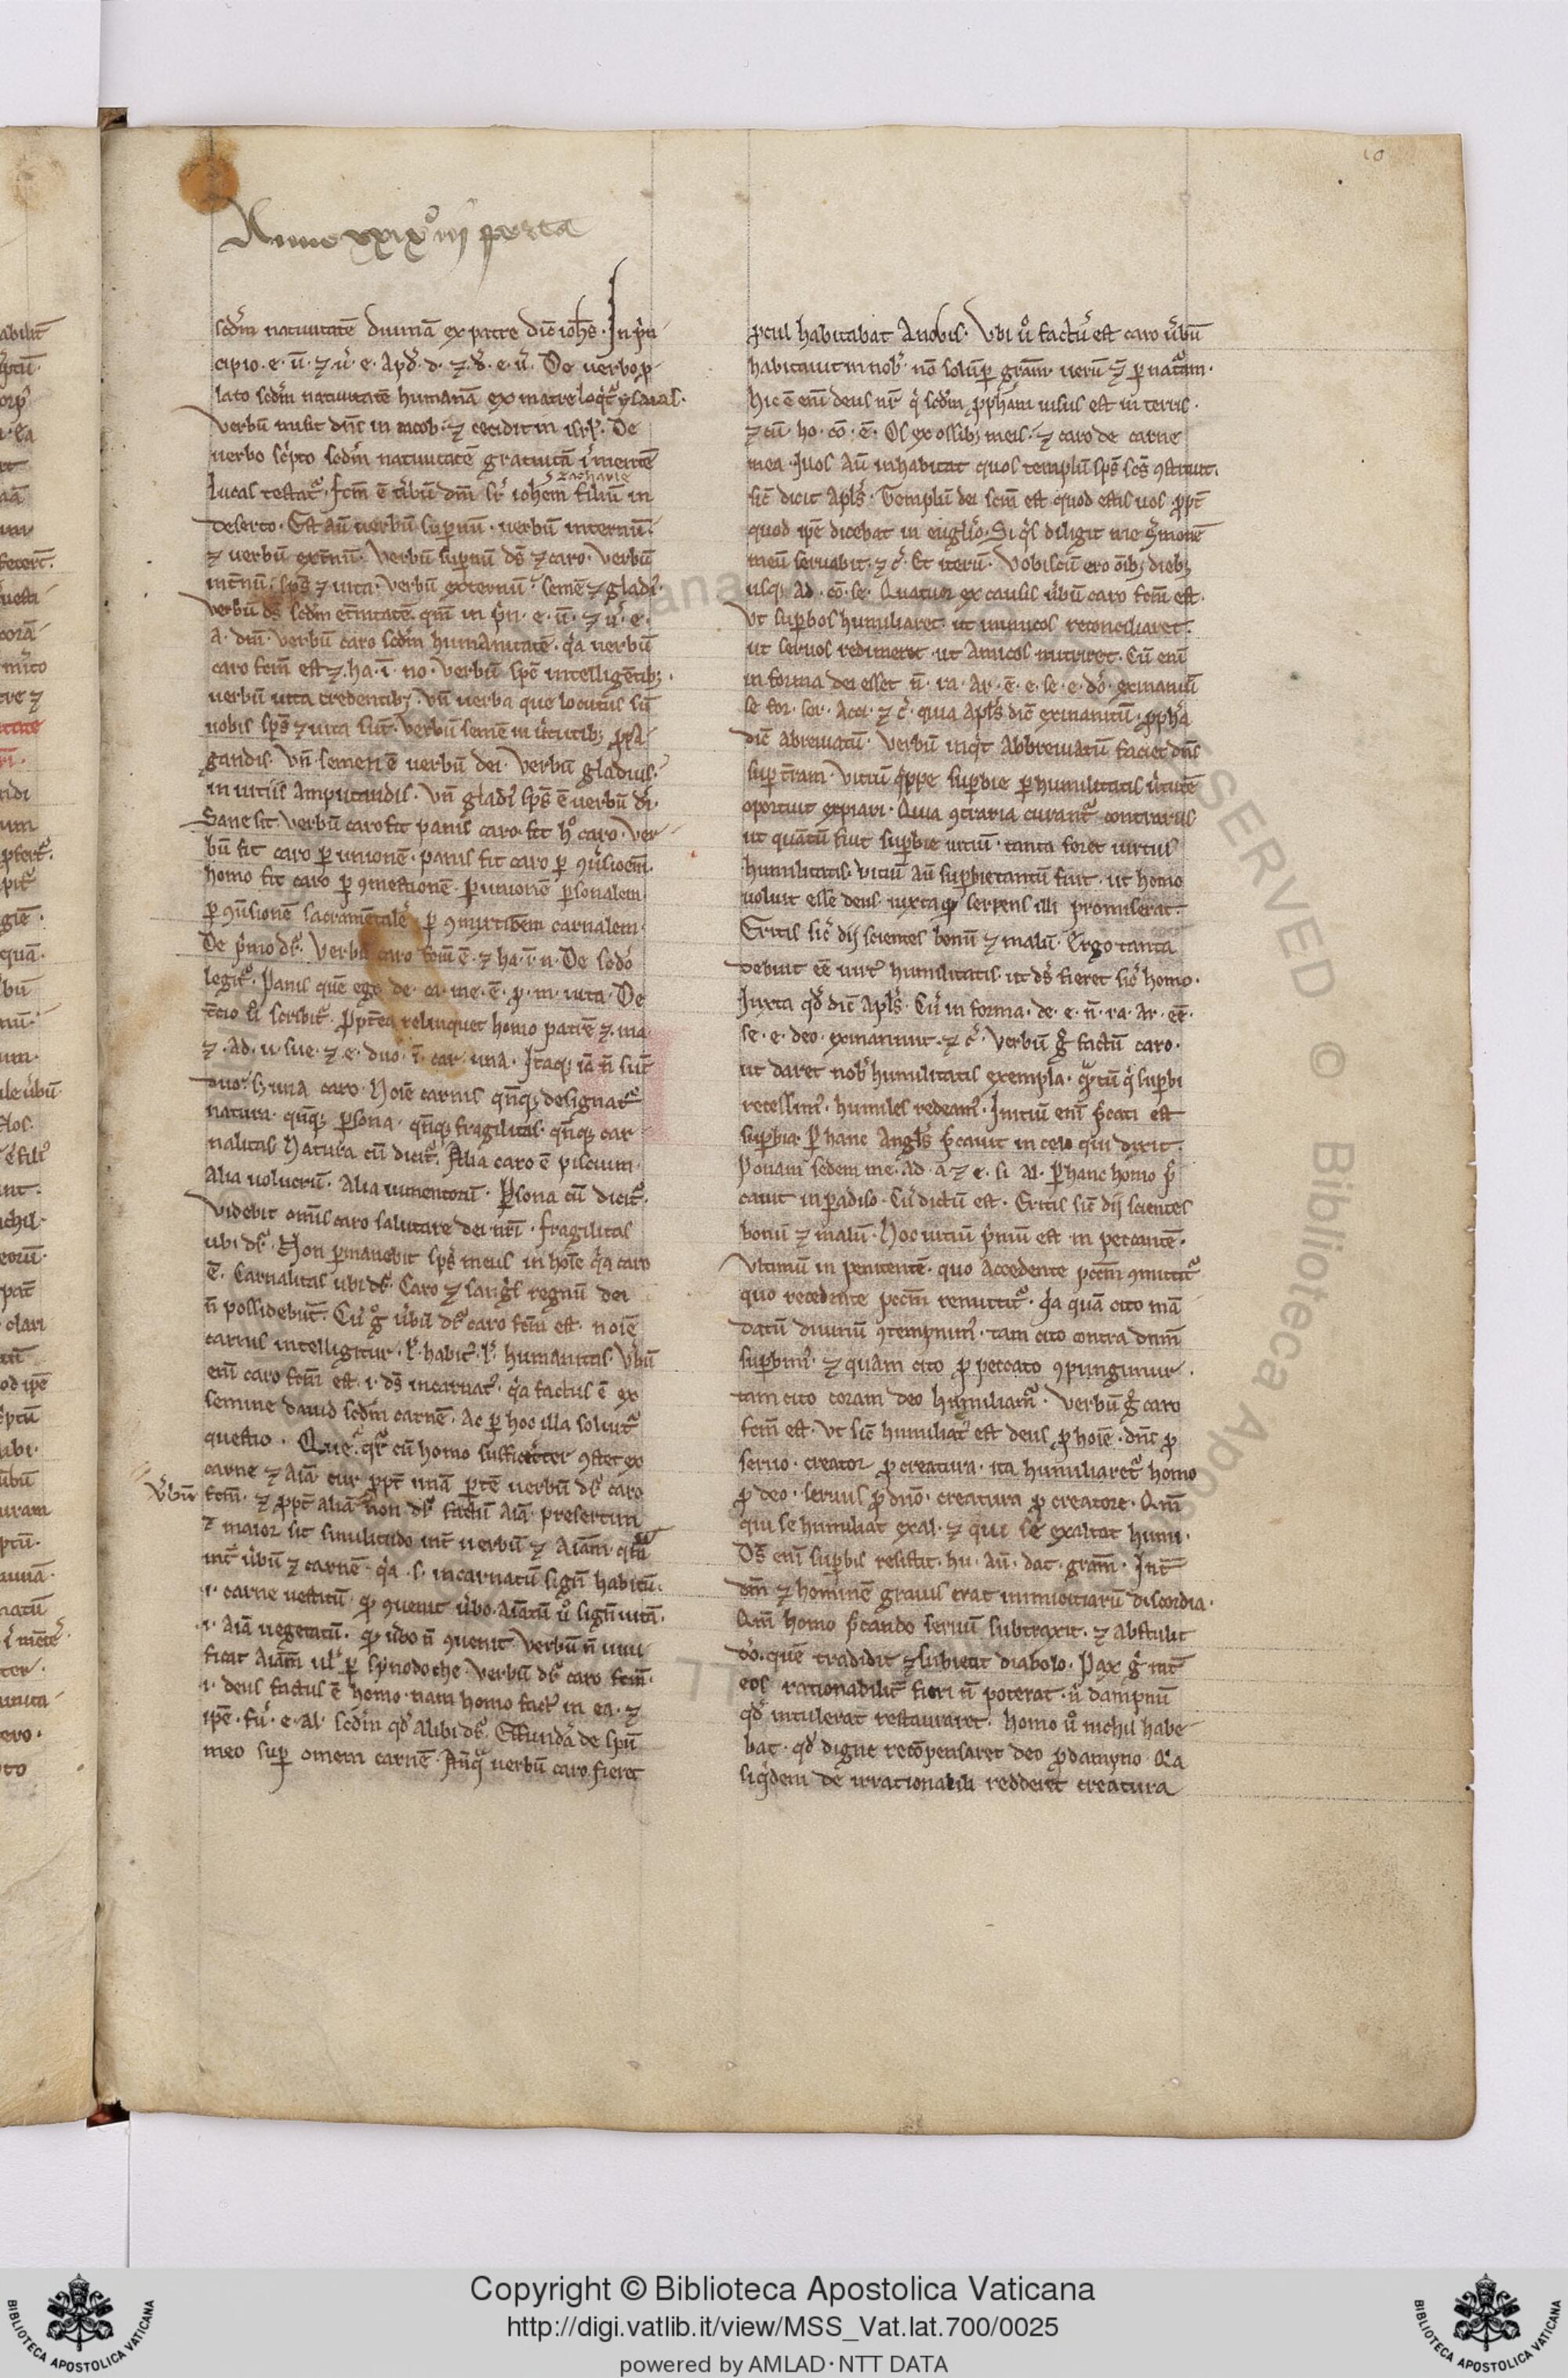 10
Anno xxix° iij festa
scdm natiuitatē diuinā ex patre dic̄ ioh̄s. In pⁱn
cipio. e. ū. ⁊ ū. e. apd̓. d. ⁊ d̓. e. ū. De uerbo ꝓ
lato scdm natiuitatē humanā ex matre loqⁱt᷑ ysaias.
Verbū misit dn̄s in iacob. ⁊ cecidit in isrl̓. De
uerbo scⁱpto scdm natiuitatē gratuitā ī mente
zacharie
lucas testat᷑. fcm̄ ē u̓bū dn̄i sr̄ ioh̄em filiū in
deserto. Est aū uerbū suꝑnū. uerbū internū.
⁊ uerbū ext̄nū. Verbū suꝑnū ds̄ ⁊ caro. Verbū
int̄nū. sp̄s ⁊ uita. Verbū externū. semē ⁊ gladiꝰ.
Verbū ds̄ scdm et̄nitatē. qm̄ in pⁱn. e. ū. ⁊ ū. e.
a. dm̄. Verbū caro scdm humanitatē. qⁱa uerbū
caro fcm̄ est ⁊. ha. ī. no. Verbū sp̄c intelligētibꝫ.
uerbū uita credentibꝫ. Vn̄ uerba que locutus sū
uobis sp̄s ⁊ uita sūt. Verbū semē in uⁱtutibꝫ ꝓpa
gandis. Vn̄ semen ē uerbū dei. Verbū gladius.
in uitiis amputandis. Vn̄ gladiꝰ sp̄s ē uerbū di̓.
Sane sic. uerbū caro fit panis caro. fit hº caro. Ver
bū fit caro ꝑ unionē. panis fit caro ꝑ ꝯu̓sioem.
homo fit caro ꝑ ꝯmestionē. ꝑ unionē ꝑsonalem.
ꝑ ꝯu̓sionē sacramētale̓. ꝑ ꝯmixtiōem carnalem.
De pⁱmo dr̓. Verbū caro fcm̄ ē. ⁊ ha. ī. n. De scdo̓
legit᷑. Panis quē ego de. ca. me. ē. ꝓ. m. uita. De
t̄cio u̓ scribit᷑. Ꝓpt̄ea relinquet homo patrē ⁊. ma
⁊. ad. u. sue. ⁊ e. duo. ī. car. una. Itaqꝫ iā n̄ sūt
duo. sꝫ una caro. Noīe carnis qn̄qꝫ designat᷑
natura. qn̄qꝫ ꝑsona. qn̄qꝫ fragilitas. qn̄qꝫ car
nalitas. Natura cū dicit᷑. Alia caro ē piscium.
Alia uolucrū. Alia iumentorū. Ꝑsona cū dicit᷑.
Videbit omīs caro salutare dei nr̄i. fragilitas
ubi dr̓. Non ꝑmanebit sp̄s meus in hoīe qⁱa caro
ē. Carnalitas ubi dr̓. Caro ⁊ sangⁱs regnū dei
n̄ possidebūt. Cū gº u̓bū dr̓ caro fcm̄ est. noīe
carnis intelligitur. ł. habitꝰ. ł. humanitas. Vb̓ū
enī caro fcm̄ est. i. ds̄ incarnatꝰ. qⁱa factus ē ex
semine dauid scdm carnē. Ac ꝑ hoc illa soluit᷑
questio. Que᷑ qr᷑ cū homo sufficiēter ꝯstet ex
carne ⁊ aīa. cur ꝓpt̄ unā ꝑtē uerbū dr̓ caro
u̓bū
fcm̄. ⁊ ꝓpt̄ aliā non dr̓ factū aīa. presertim
⁊ maior sit similitudo int̄ uerbū ⁊ aīam. qⁱa
int̄ u̓bū ⁊ carnē. qⁱa. s. incarnatū sign̄ habitū.
i. carne uestitū. qᵒ ꝯuenit u̓bo. Aīatū uº sign̄ uitā.
i. aīa uegetatū. qᵒ u̓bo n̄ ꝯuenit. Verbū n̄ uiui
ficat aīam ul̓ ꝑ synodoche. Verbū dr̓ caro fcm̄.
i. deus factus ē homo. nam homo factꝰ in ea. ⁊
ipē. fū. e. al. scdm qd̓ alibi dr̓. Effundā de spū
meo suꝑ omem carnē. Anteqª uerbū caro fieret
ꝓcul habitabat a nobis. Vbi uº factū est caro u̓bū
habitauit in nob̓. nō solū ꝑ grām. uerū ⁊ ꝑ natᵃam.
hic ē enī deus nr̄ qⁱ scdm ꝓpham uisus est in terris.
⁊ cū. ho. cō. ē. Os ex ossibꝫ meis. ⁊ caro de carne
mea. Iuos aū inhabitat quos templū sp̄s scs̄ ꝯstituit.
sic̄ dicit apls̓. Templū dei scm̄ est quod estis uos. ꝓpt̄
quod ipē dicebat in euglio̓. Si qⁱs diligit me s̓monē
meū seruabit. ⁊ c̓. Et iterū. Vobiscū ero ōibꝫ diebꝫ
usqꝫ ad. cō. se. Quatuor ex causis u̓bū caro fcm̄ est.
Vt suꝑbos humiliaret. ut inimicos reconciliaret.
ut seruos redimeret. ut amicos nutriret. Cū enī
in forma dei esset n̄. ra. ar. ē. e. se. e. do̓. exinaniū
se for. ser. acci. ⁊ c̓. quia apls̓ dic̄ exinanitū. ꝓpha
dic̄ abreuiatū. Verbū inqⁱt abbreuiatū faciet dn̄s
suꝑ t̄ram. Vitiū qⁱppe suꝑbie ꝑ humilitatis uⁱtutē
oportuit expiari. Quia ꝯtraria curant᷑ contrariis
ut quātū fuit suꝑbie uitiū. tanta foret uirtus
humilitatis. Vitiū aū suꝑbie tantū fuit. ut homo
uoluit esse deus. iuxta qᵒ serpens illi promiserat.
Eritis sic̓ dij scientes bonū ⁊ malū. Ergo tanta
debuit eē uirtꝰ humilitatis. ut ds̓ fieret sic̓ homo.
Iuxta qd̓ dic̄ apls̓. Cū in forma. de. e. n̄. ra. ar. eē.
se. e. deo. exinaniuit. ⁊ c̓. Verbū gº factū caro.
ut daret nob̓ humilitatis exempla. qᵃtū qⁱ suꝑbi
recessimꝰ. humiles redeamꝰ. Initiū enī pccati est
suꝑbia. Ꝑ hanc angls̓ peccauit in celo qui dixit.
Ponam sedem me. ad. a. ⁊ e. si. al. Ꝑ hanc homo pec
cauit in paᵈiso. Cū dictū est. Eritis sic̄ dij scientes
bonū ⁊ malū. Hoc uitiū pⁱmū est in peccantē.
Vltimū in penitentē. quo accedente pccm̄ ꝯmittit᷑
quo recedente pccm̄ remittit᷑. qⁱa quā cito mā
datū diuinū ꝯtempnimꝰ. tam cito contra dnm̄
suꝑbimꝰ. ⁊ quam cito ꝓ peccato ꝯpungimur.
tam cito coram deo humiliam᷑. Verbū gº caro
fcm̄ est. Vt sic̄ humiliatꝰ est deus ꝓ hoīe. dn̄s ꝓ
seruo. creator ꝓ creatura. ita humiliaret᷑ homo
ꝓ deo. seruus ꝓ dnō. creatura ꝓ creatore. Qm̄
qui se humiliat exal. ⁊ qui se exaltat humi.
Ds̄ enī suꝑbis resistit. hu. aū. dat. grām. Int̄
dm̄ ⁊ hominē grauis erat inimicitiarū discordia.
Qm̄ homo peccando seruū subtraxit. ⁊ abstulit
do̓. quē tradidit ⁊ subiecit diabolo. Pax gº int̄
eos rationabilit̄ fieri n̄ poterat. nⁱ dampnū
qd̓ intulerat restauraret. homo uº nichil habe
bat. qd̓ digne recōpensaret deo ꝓ dampno. Qⁱa
siqⁱdem de irrationabili redderet creatura
Copyright © Biblioteca Apostolica Vaticana
http://digi.vatlib.it/view/MSS_Vat.lat.700/0025
powered by AMLAD · NTT DATA
BIBLIOTECA APOSTOLICA VATICANA
BIBLIOTECA APOSTOLICA VATICANA